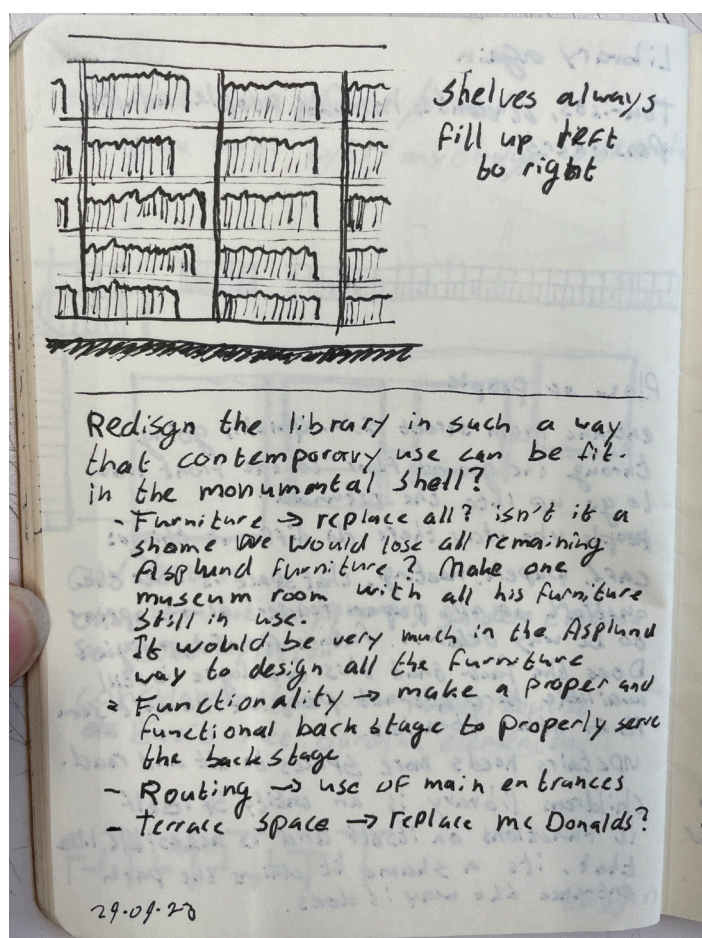 shelves always
fill up left
to right
Redisgn the library in such a way
that contemporary use can be fit.
in the monumental shell?
- Furniture → replace all? isn't it a
shame we would lose all remaining
Asplund furniture? Make one
museum room with all his furniture
still in use.
It would be very much in the Asplund
way to design all the furniture
- Functionality → make a proper and
functional back stage to properly serve
the back stage
- Routing → use of main entrances
- Terrace space → replace mc Donalds?